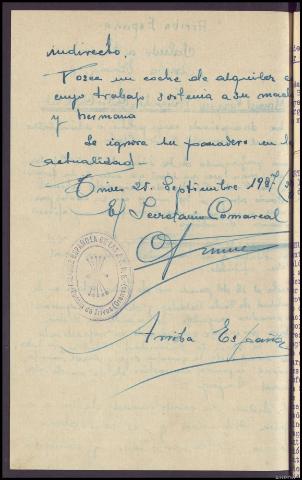 indirecto.
Posee un coche de alquiler
cuyo trabajo sostenia a su madre
y hermana
Se ignora su paradero en la
actualidad.
Trives 25. Septiembre 1937
El Secretario Comarcal
Arriba España
ESPAÑOLA DE LAS J.O.N.S.
de Trives (Orense)